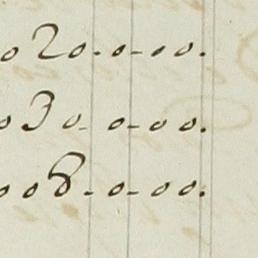 020.-0.-00.
030.-0.-00.
008.-0.-00.